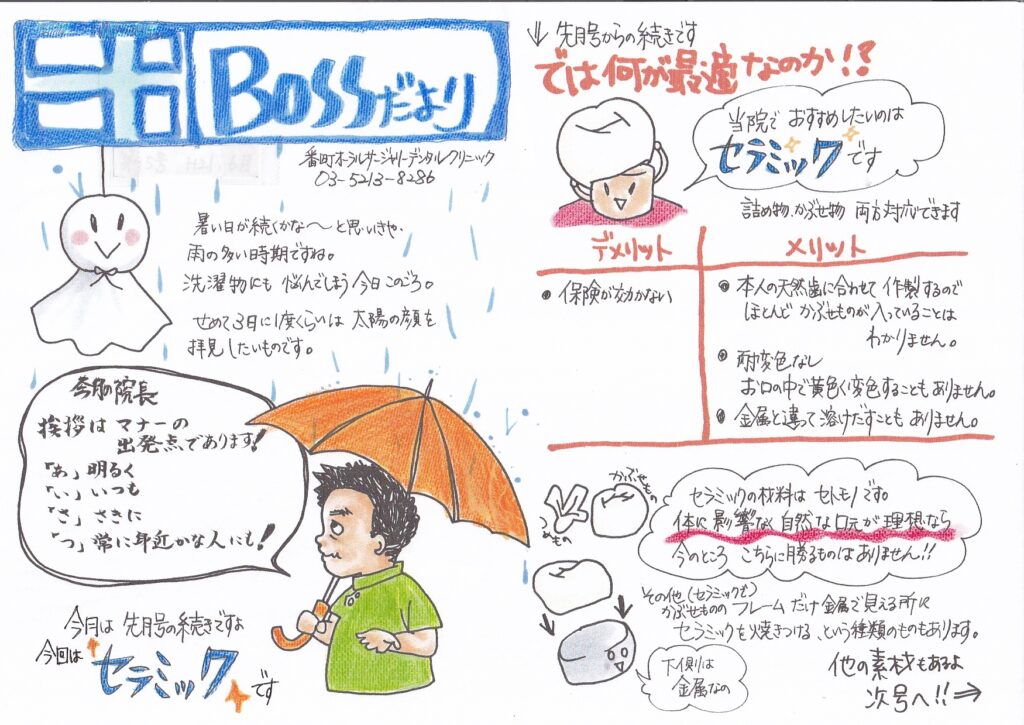 BOSSだより
番町オーラルサージャリーデンタルクリニック
03-5213-8286
暑い日が続くかな〜と思いきや、
雨の多い時期ですね。
洗濯物にも悩んでしまう今日このごろ。
せめて3日に1度くらいは太陽の顔を
拝見したいものです。
今月の院長
挨拶はマナーの
出発点であります!
「あ」明るく
「い」いつも
「さ」さきに
「つ」常に年近かな人にも!
今月は先月号の続きですよ
今回は
セラミックです
先月号からの続きです
では何が最適なのか!?
当院でおすすめしたいのは
セラミックです
詰め物、かぶせ物 両方対応できます
デメリット
メリット
●保険が効かない
●本人の天然歯に合わせて作製するので
ほとんどかぶせものが入っていることは
わかりません。
●耐変色なし
お口の中で黄色く変色することもありません。
●金属と違って溶けだすこともありません。
かぶせもの
つめもの
セラミックの材料はセトモノです。
体に影響なく自然な口元が理想なら
今のところ こちらに勝るものはありません!!
その他(セラミックも)
かぶせもののフレームだけ金属で見える所に
セラミックを焼きつける、という種類のものもあります。
下側は
金属なの
他の素材もあるよ
次号へ!!⇒